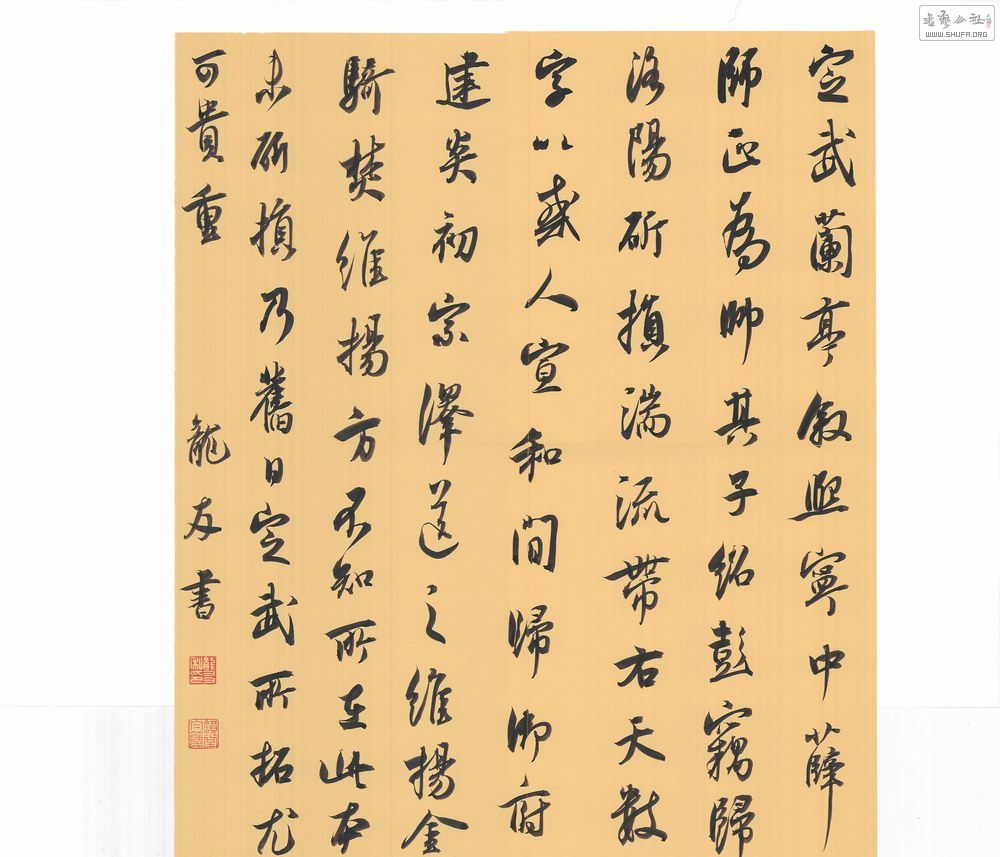 定武蘭亭叙熙寧中薛
師正為帥其子紹彭竊歸
洛陽斫損湍流帶右天數
字以惑人宣和間歸御府
建炎初宗澤送之維揚金
騎焚維揚方不知所在此本
未斫損乃舊日定武所拓尤
可貴重
龍友書
書藝公社
WWW.SHUFA.ORG